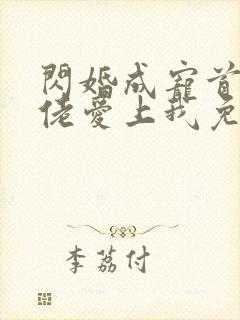 閃婚成寵首
佬愛上我免
李荔付